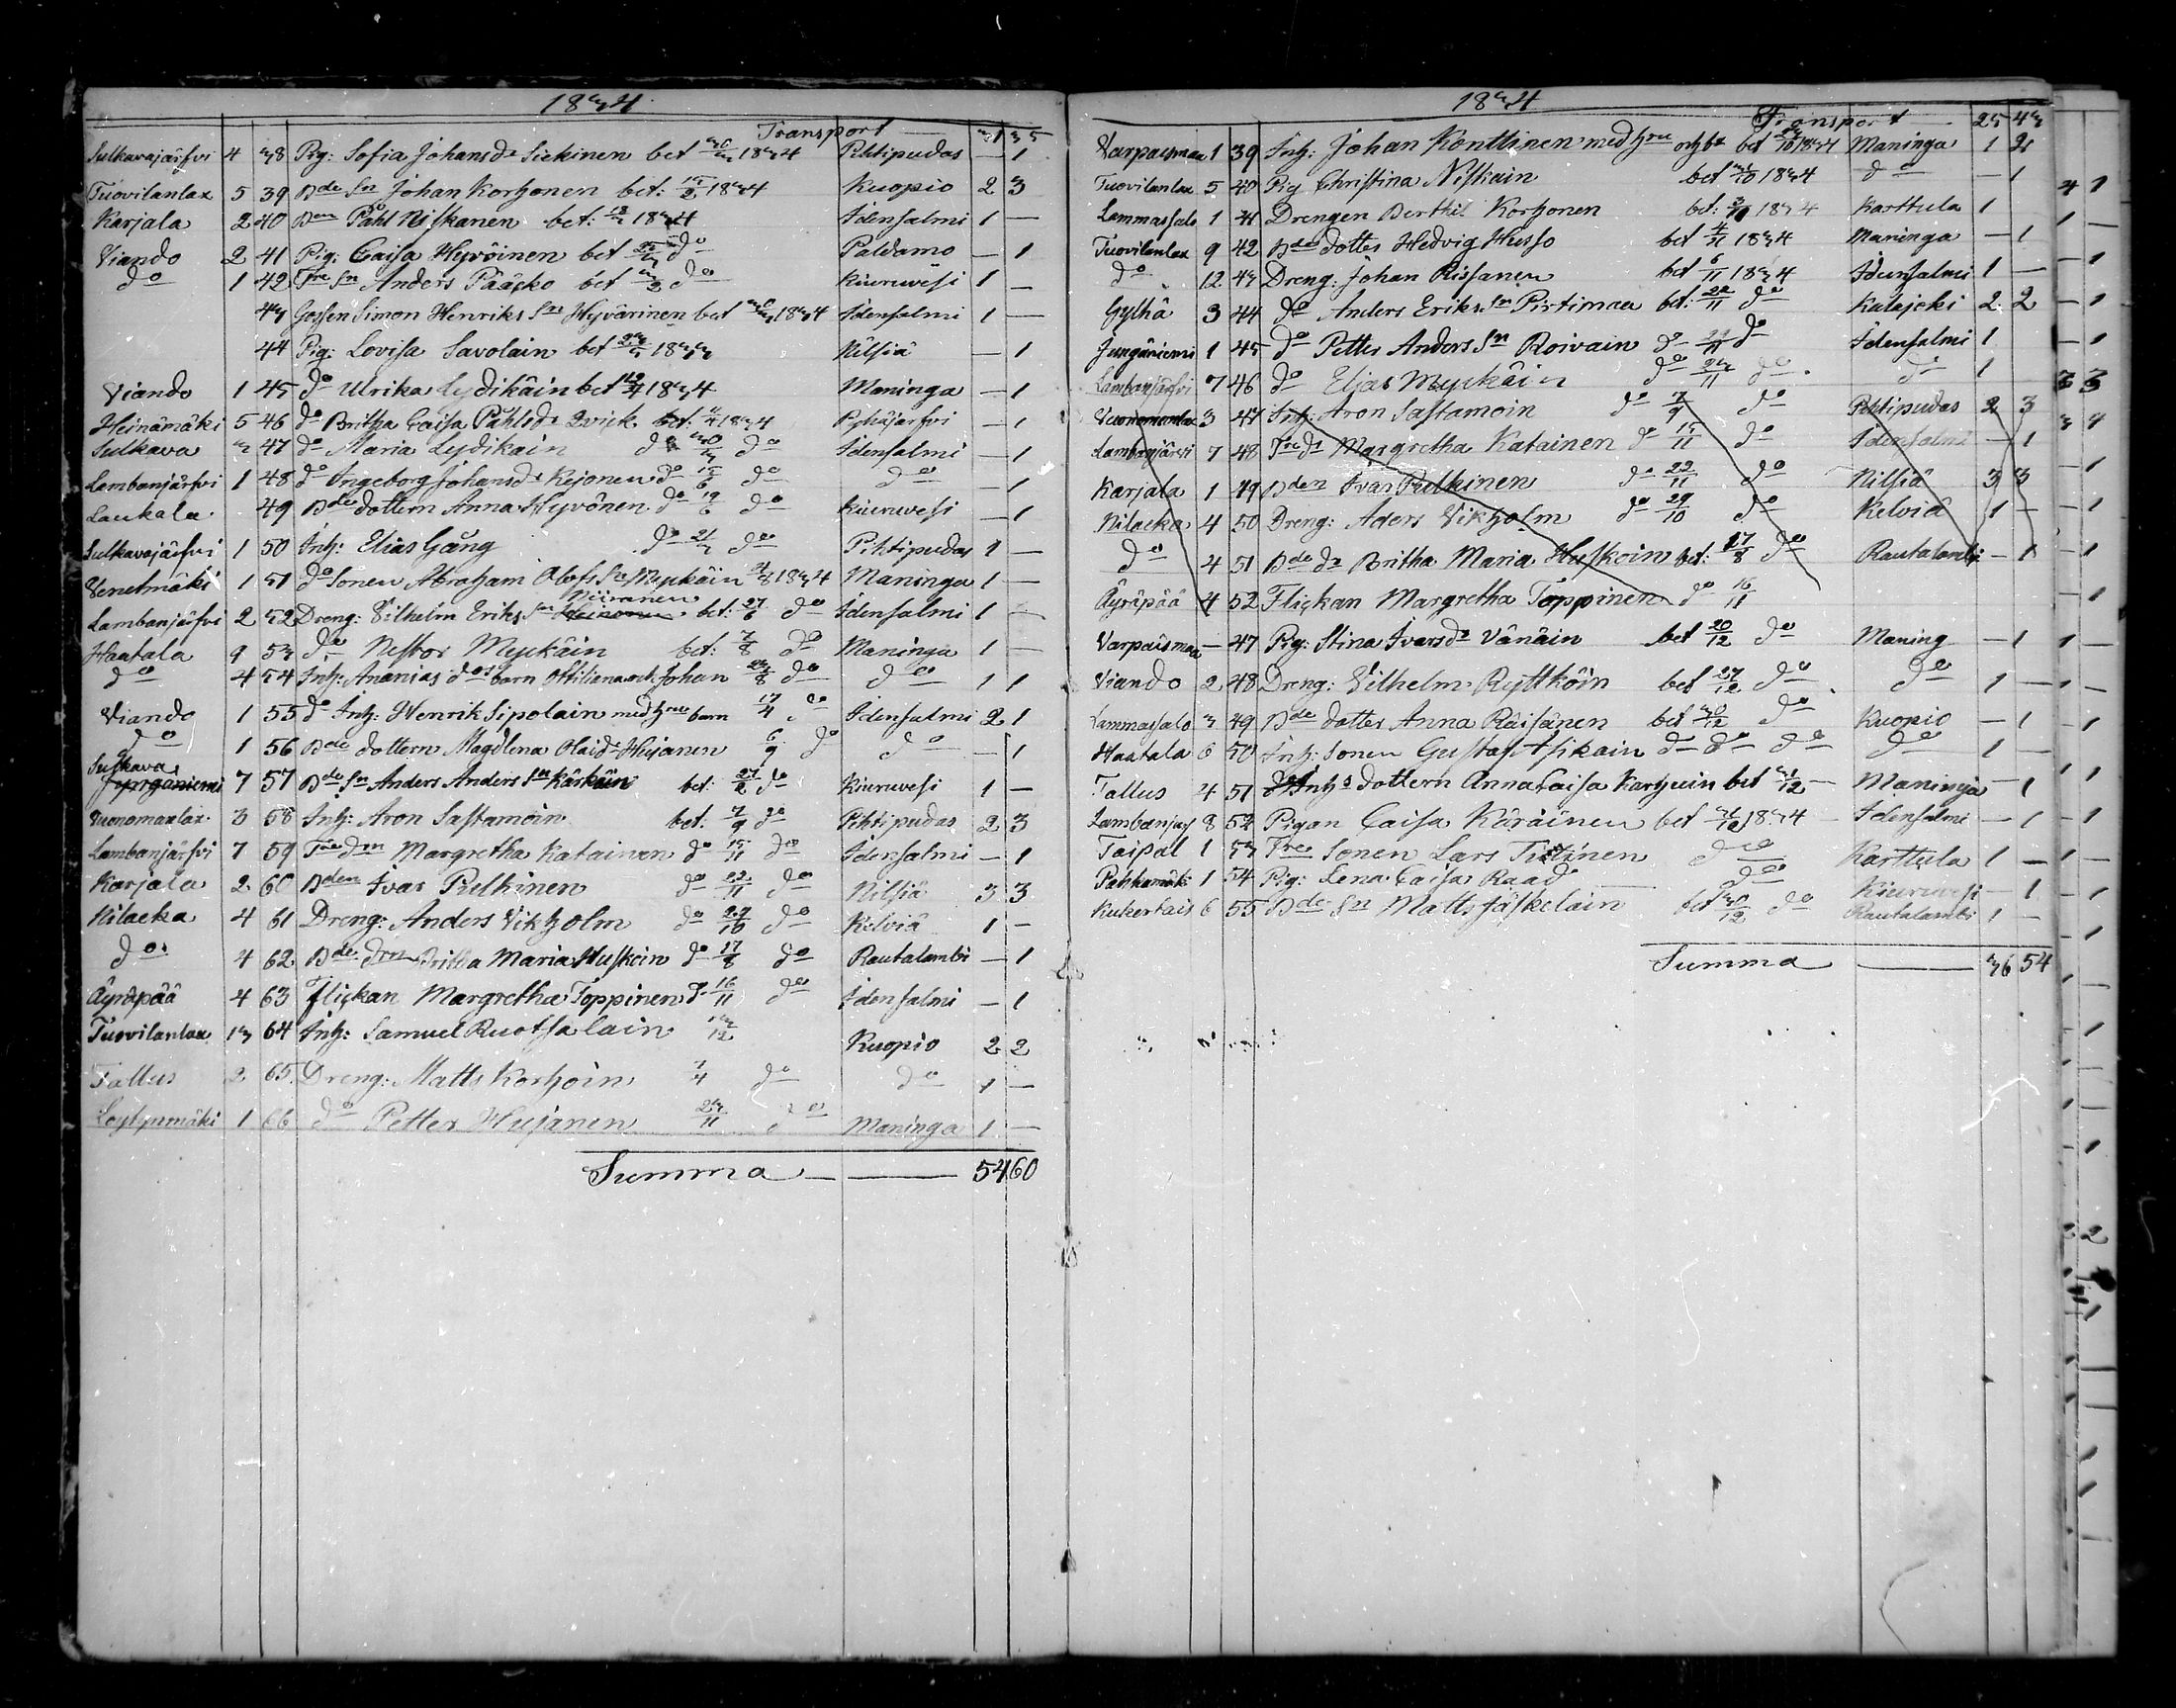 1834
Transport — 31 35
Sulkavajärfvi 4 38 Pig: Sofia Johansdr Siekinen bet 30/3 1834 Pihtipudas — 1
Tuovilanlax 5 39 Bde Sn Johan Korhonen bet: 15/2 1834 Kuopio 2 3
Karjala 2 40 Bon Påhl Niskanen bet: 18/3 1834 Idensalmi 1 —
Viando 2 41 Pig: Caisa Hyvöinen bet 25/3 do Paldamo — 1
do 1 42 Tre Sn Anders Pääsko bet 3/3 do Kiuruwesi 1 —
43 Gossen Simon Henriks Sn Hyvärinen bet 30/3 1834 Idensalmi 1 —
44 Pig: Lovisa Savolain bet 1833 Nilsiä — 1
Viando 1 45 do Ulrika Lydikäin bet 19/4 1834 Maninga — 1
Heinämäki 5 46 do Britha Caisa Påhlsdr Qvick bet: 1834 Pyhäjärfvi — 1
Sulkava 3 47 do Maria Lydikäin do 30/3 do Idensalmi — 1
Lambanjärfvi 1 48 do Ingeborg Johansdr Rejonen do 15/6 do do — 1
Laukala 49 Bde dottern Anna Hyvönen do 19/6 do Kiuruwesi — 1
Sulkavajärfvi 1 50 Inh: Elias Gång do 21/3 do Pihtipudas 1 —
Venetmäki 1 51 do Sonen Abraham Olofs Sn Myckäin 3/8 1834 Maninga 1 —
Niiranen
Lambanjärfvi 2 52 Dreng: Vilhelm Eriks Sn Heinonen bet: 27/6 do Idensalmi 1 —
Haatala 9 53 do Nestor Myckäin bet: 7/8 do Maninga 1 —
do 4 54 Inh: Ananias dos barn Ottiliana och Johan 23/8 do do 1 1
Viando 1 55 do Inh: Henrik Sipolain med hru barn 17/4 do Idensalmi 2 1
do 1 56 Bde dottern Magdlena Olaidr Hujanen 6/9 do do — 1
Sulkava
Jynganiemi 7 57 Bde Sn Anders Anders Sn Kärkäin bet: 27/2 do Kiuruwesi 1 —
Vuonomanlax 3 58 Inh: Aron Sastamoin bet: 7/9 do Pihtipudas 2 3
Lambanjärfvi 7 59 Tre drn Margretha Katainen do 15/11 do Idensalmi — 1
Karjala 2 60 Bden Ivar Pulkinen do 22/11 do Nilsiä 3 3
Nilacka 4 61 Dreng: Anders Vikholm do 29/10 do Kelviä 1 —
do 4 62 Bde drn Britha Maria Huskoin do 17/8 do Rautalambi — 1
Äyräpää 4 63 Flickan Margretha Toppinen do 16/11 do Idensalmi — 1
Tuovilanlax 13 64 Inh: Samuel Ruotsalain 13/12 Kuopio 2 2
Tallus 2 65 Dreng: Matts Korhoin 7/4 do do 1 —
Löytynmäki 1 66 do Petter Hujanen 23/11 do Maninga 1 —
Summa — — 54 60
1834
Transport 25 43
Varpaismaa 1 39 Inh: Johan Konttinen med hru och br bet 1834 Maninga 1 2
Tuovilanlax 5 40 Pig Christina Niskain bet 1834 do — 1
Lammassalo 1 41 Drengen Berthil Korhonen bet: 1834 Karttula 1
Tuovilanlax 9 42 Bde dotter Hedvig Husso bet 4/11 1834 Maninga — 1
do 12 43 Dreng: Johan Rissanen bet 6/11 1834 Idensalmi 1 —
Gylhä 3 44 do Anders Eriks Sn Pirtimaa bet: 22/11 do Kalajoki 2 2
Jungäniemi 1 45 do Petter Anders Sn Roivain do 29/11 do Idensalmi 1
Lambanjärfvi 7 46 do Elias Myckäin do 23/11 do do 1
Vuonomanlax 3 47 Inh: Aron Sastamoin do 7/9 do Pihtipudas 2 3
Lambanjärfvi 7 48 Tre dr Margretha Katainen do 15/11 do Idensalmi — 1
Karjala 1 49 Bden Ivar Pulkinen do 22/11 do Nilsiä 3 3
Nilacka 4 50 Dreng: Aders Vikholm do 29/10 do Kelviä 1 —
do 4 51 Bde dr Britha Maria Huskoin bet: 17/8 do Rautalambi — 1
Äyräpää 4 52 Flickan Margretha Toppinen do 16/11
Varpaismaa — 47 Pig: Stina Ivarsdr Vänäin bet 20/12 do Maning — 1
Viando 2 48 Dreng: Vilhelm Ryttköin bet 27/12 do do 1 —
Lammassalo 3 49 Bde dotter Anna Räisänen bet 30/12 do Kuopio — 1
Haatala 6 50 Inh: Sonen Gustaf Asikain do do do do 1 —
Tallus 4 51 Inhs dottern Anna Caisa Karhuin bet 31/12 — Maninga — 1
Lambanjärf 8 52 Pigan Caisa Käräinen bet 31/12 1834 Idensalmi — 1
Taipal 1 53 Tre Sonen Lars Tiitinen do Karttula 1 —
Pahkamäki 1 54 Pig: Lena Caisa Raad do Kiuruwesi — 1
Kukertais 6 55 Bde Sn Matts Jäskeläin bet 30/12 do Rautalambi 1 —
Summa — 36 54